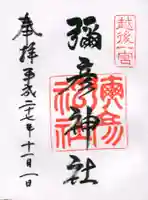 越後一宮
彌彦神社
奉拝 平成二十七年十一月一日